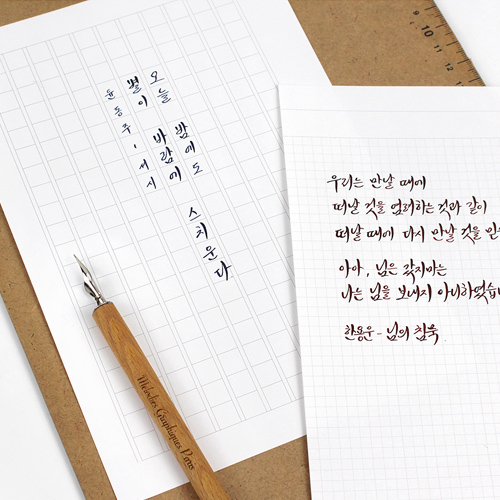 오늘 밤에도
별이 바람에
스치운다
윤동주, 서시
우리는 만날 때에
떠날 것을 염려하는 것과 같이
떠날 때에 다시 만날 것을
아아, 님은 갔지마는
나는 님을 보내지 아니하였습
한용운 - 님의 침묵
Mélodies Graphiques Pens
9 10 11 12
10